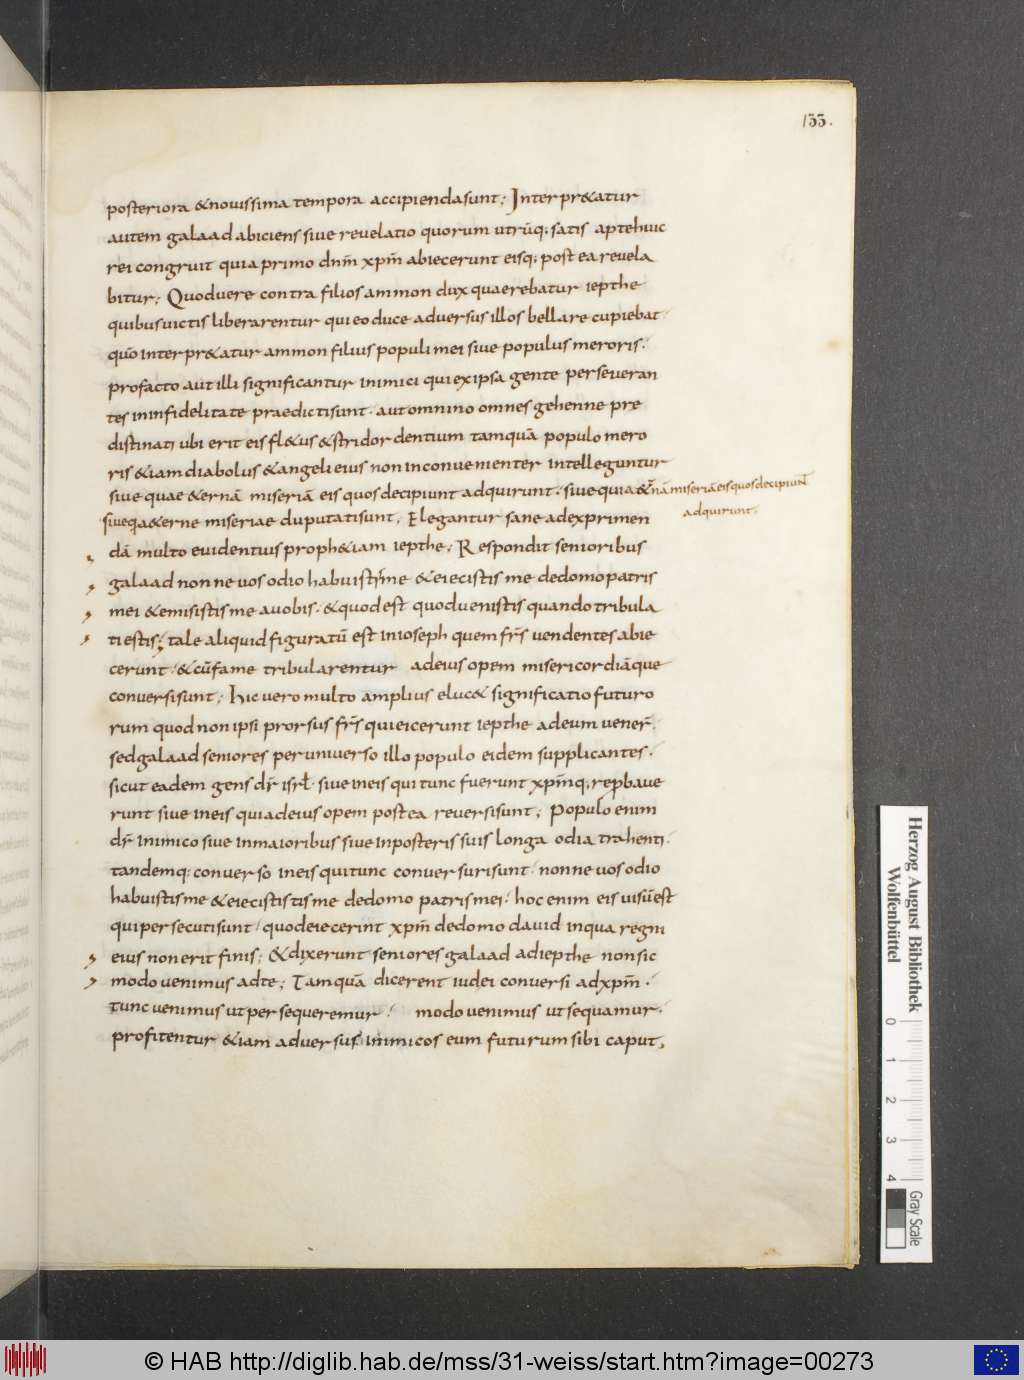 133.
posteriora & nouissima tempora accipienda sunt; Interpr&atur
autem galaad abiciens siue reuelatio quorum utrūq; satis apte huic
rei congruit quia primo dnm̄ xpm̄ abiecerunt eisq; postea reuela
bitur; Quod uere contra filios ammon dux quaerebatur iepthe
quibus uictis liberarentur qui eo duce aduersus illos bellare cupiebat
quō interpr&atur ammon filius populi mei siue populus meroris.
profacto aut illi significantur inimici qui ex ipsa gente perseueran
tes in infidelitate praedicti sunt. aut omnino omnes gehenne pre
distinati ubi erit eis fl&us & stridor dentium tamquā populo mero
ris & iam diabolus & angeli eius non inconuenienter intelleguntur
siue quae &ernā miseriā eis quos decipiunt adquirunt. siue quia &
nā miseriā eis quos decipiunt
adquirunt.
siue qa &erne miseriae duputati sunt, Elegantur sane ad exprimen
dā multo euidentius proph&iam iepthe; Respondit senioribus
galaad nonne uos odio habuistis me & eiecistis me de domo patris
mei & emisistis me a uobis. & quod est quod uenistis quando tribula
ti estis; tale aliquid figuratū est in ioseph quem frs̄ uendentes abie
cerunt. & cū fame tribularentur ad eius opem misericordiāque
conuersi sunt; hic uero multo amplius eluc& significatio futuro
rum quod non ipsi prorsus frs̄ qui eiecerunt iepthe ad eum uener̄.
sed galaad seniores per uniuerso illo populo eidem supplicantes.
sicut eadem gens dr̄ isrl. siue in eis qui tunc fuerunt xpm̄q; reprbaue
runt siue in eis qui ad eius opem postea reuersi sunt; Populo enim
dr̄ inimico siue in maioribus siue in posteris suis longa odia trahenti.
tandemq; conuerso in eis qui tunc conuersuri sunt. nonne uos odio
habuistis me & eiecististis me de domo patris mei. hoc enim eis uisū est
qui persecuti sunt. quod eiecerint xpm̄ de domo dauid in qua regni
eius non erit finis; & dixerunt seniores galaad ad iepthe non sic
modo uenimus ad te; Tamquā dicerent iudei conuersi ad xpm̄.
tunc uenimus ut persequeremur. modo uenimus ut sequamur.
profitentur & iam aduersus inimicos eum futurum sibi caput,
Herzog August Bibliothek
Wolfenbüttel
0 1 2 3 4
Gray Scale
© HAB http://diglib.hab.de/mss/31-weiss/start.htm?image=00273